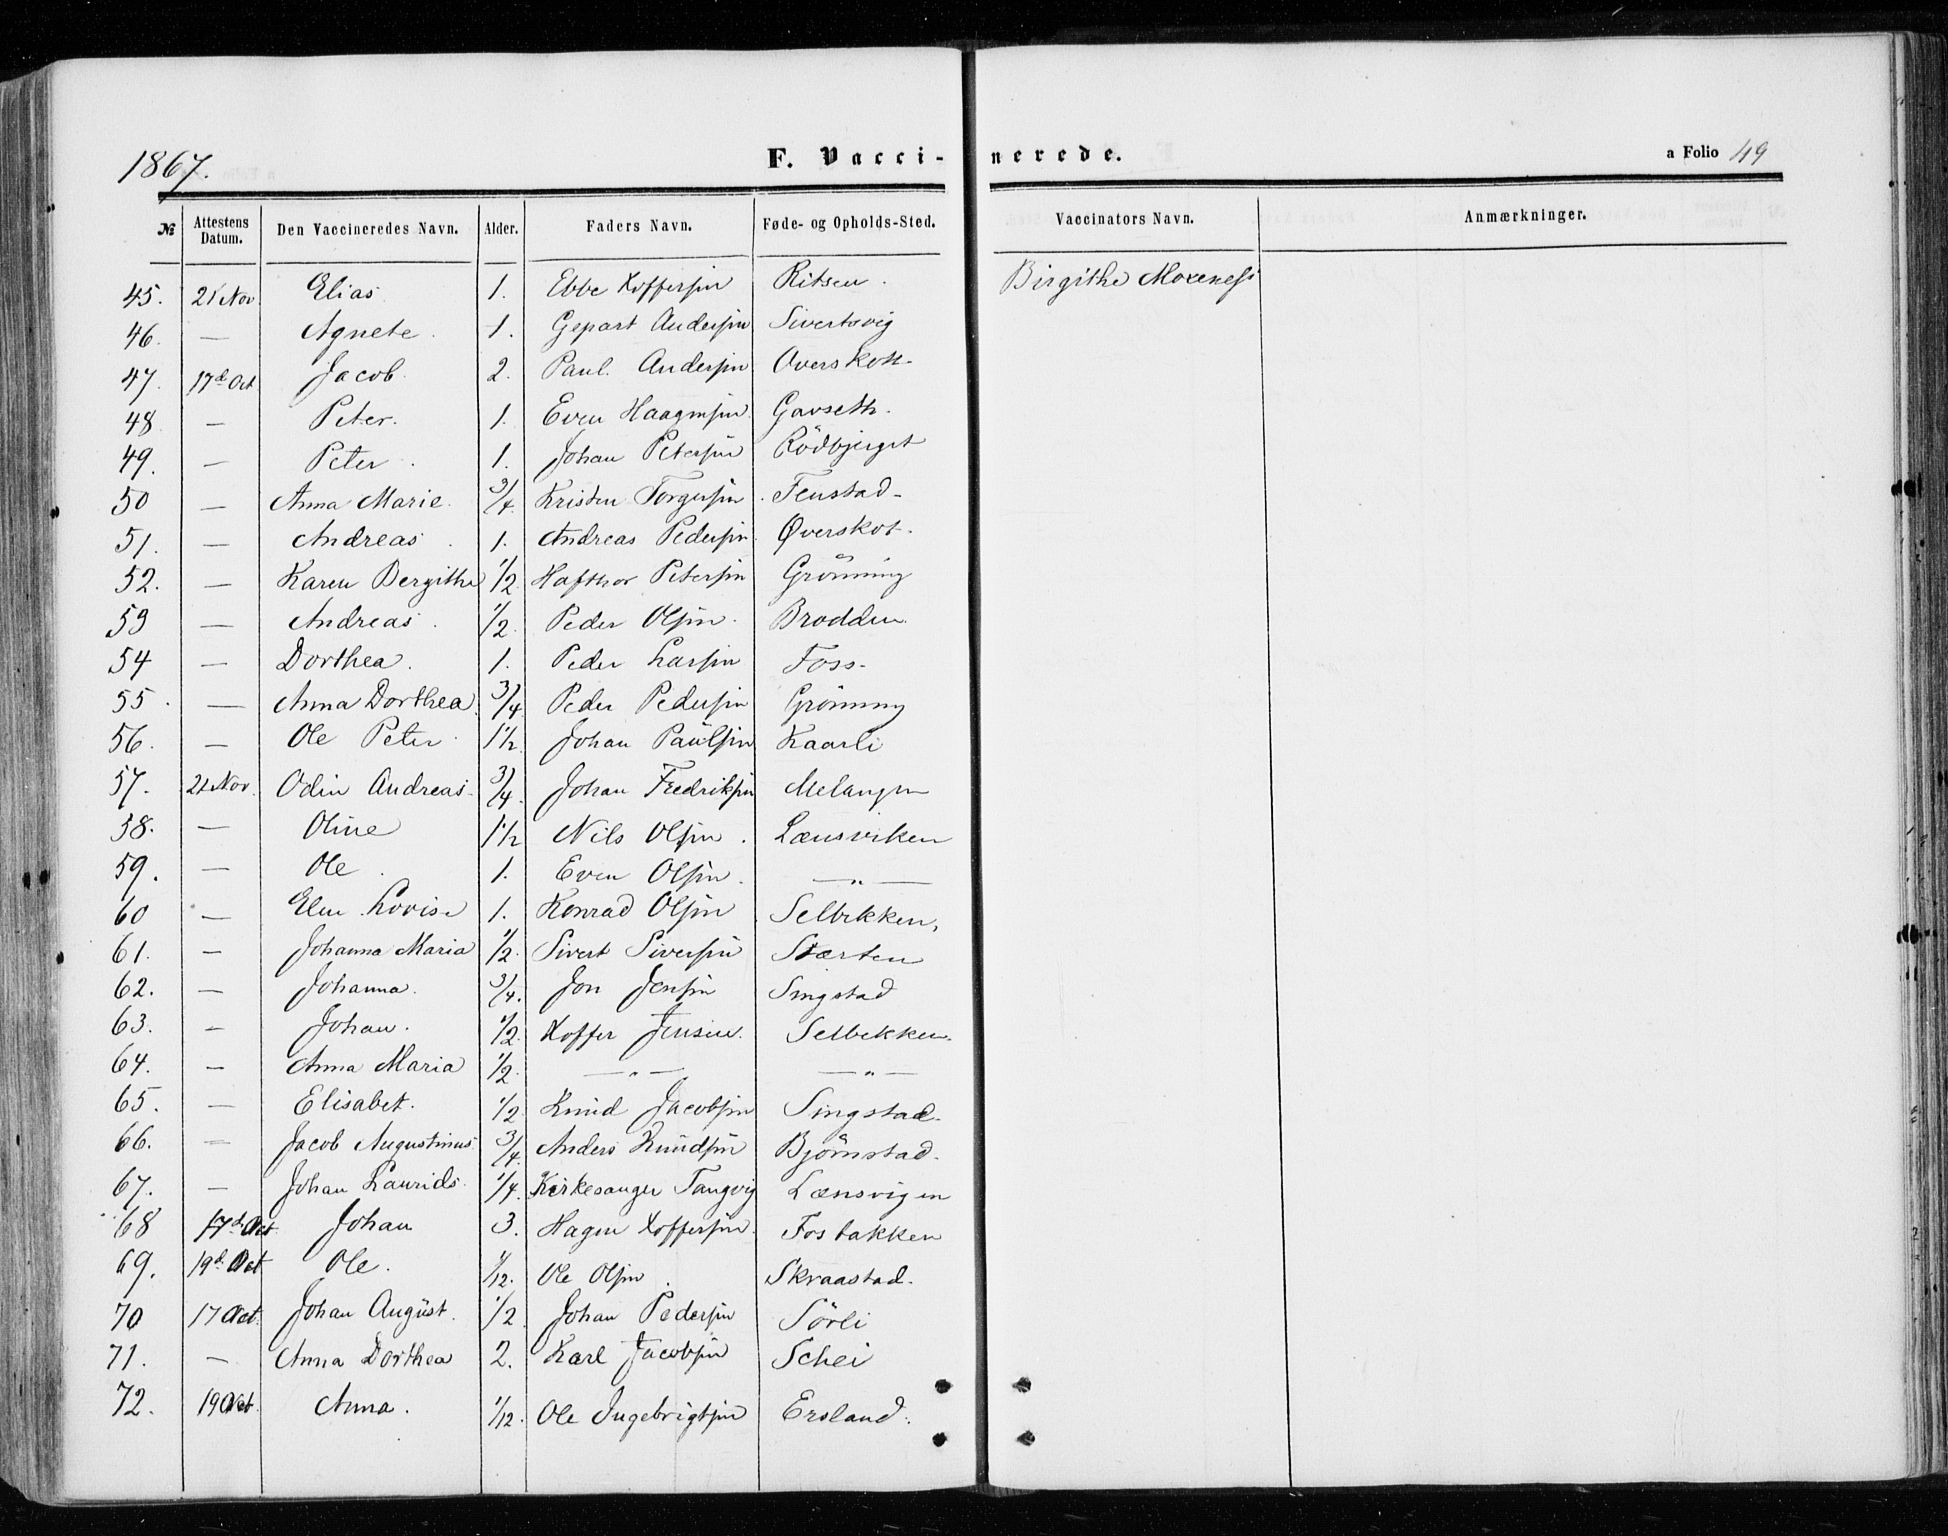 1867. F. Vacci- nerede. a Folio 49
№ Attestens Datum. Den Vaccineredes Navn. Alder. Faders Navn. Føde- og Opholds-Sted. Vaccinators Navn. Anmærkninger.
45. 21 Nov Elias 1. Ebbe Xoffersen Ritsen. Birgithe Moxeness
46. — Agnete. 1. Gepart Andersen Sivertsvig
47. 17d Oct Jacob. 2. Paul. Andersen Overskott.
48 — Peter. 1. Even Haagensen Gavseth.
49. — Peter. 1. Johan Petersen Rödbjerget
50 — Anna Marie. 3/4. Kristen Torgersen. Fenstad-
51. — Andreas. 1. Andreas Pedersen. Øverskot.
52. — Karen Bergithe 1/2 Hafthor Petersen Grönning
53 — Andreas. 1/2. Peder Olsen. Brodden.
54 — Dorthea. 1. Peder Larsen Foss-
55. — Anna Dorthea 3/4 Peder Pedersen Grönning
56. — Ole Peter. 1 1/2 Johan Paulsen Kaarli
57. 21 Nov. Odin Andreas. 3/4. Johan Fredriksen Melangen
58. — Oline 1 1/2 Nils Olsen. Lænsviken
59. — Ole. 1. Even Olsen. — " —
60 — Elen Lovise 1. Konrad Olsen Selbekken,
61. — Johanna Maria 1/2. Sivert Siversen Stærten
62. — Johanna. 3/4. Jon Jensen Singstad
63. — Johan. 1/2. Xoffer Jensen. Selbekken.
64. — Anna Maria 1/2. — " — — " —
65. — Elisabet. 1/2 Knud Jacobsen Singstad.
66. — Jacob Augustinus 3/4. Anders Knudsen Bjørnstad.
67. — Johan Laurids. 1/4. Kirkesanger Tangvig Lænsvigen
68 17d Oct Johan 3. Hagen Xoffersen. Fosbakken
69. 19d Oct Ole. 1/12. Ole Olsen. Skraastad.
70 17 Oct. Johan August. 1/2 Johan Pedersen Sörli
71. — Anna Dorthea 2. Karl Jacobsen Schei
72. 19 Oct. Anna. 1/12. Ole Ingebrigtsen Ersland.